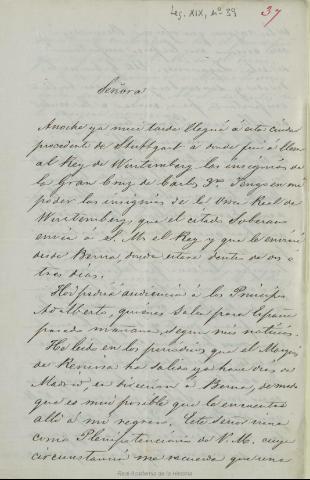 Leg. XIX, nº 39
37
Señora
Anoche ya muy tarde llegué á esta ciudad
procedente de Stuttgart á donde fui á llevar
al Rey de Wurtemberg las insignias de
la Gran Cruz de Carlos 3º. Tengo en mi
poder las insignias de la Real de
Wurtemberg, que el citado Soberano
envia á S. M. el Rey y que le enviaré
desde Berna, donde estaré dentro de dos ó
tres dias.
Hoy pediré audiencia á los Principes
Adalberto, quienes salen para España
pasado mañana, segun mis noticias.
He leido en los periódicos que el Marqués
de Remisa ha salido ya hace dias de
Madrid, en direccion á Berna, de modo
que es muy posible que le encuentre
allí á mi regreso. Este señor viene
como Plenipotenciario de V. M. cuya
circunstancia me recuerda que una
Real Academia de la Historia